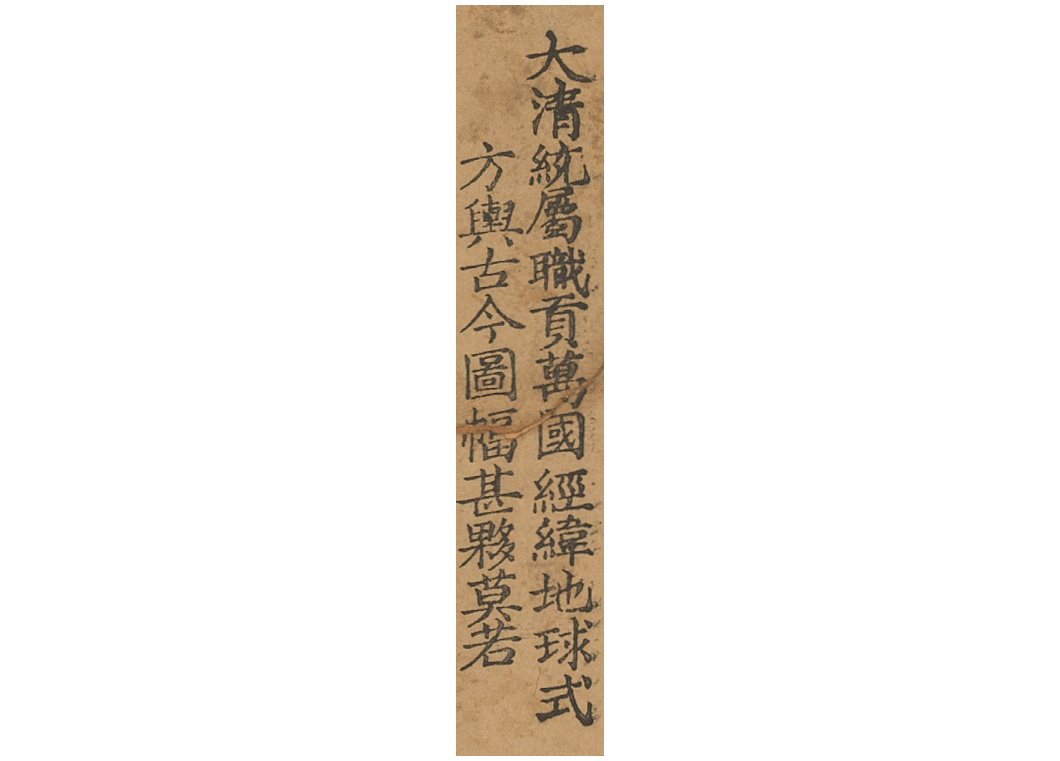 大清統屬職貢萬國經緯地球式
方輿古今圖幅甚夥莫若